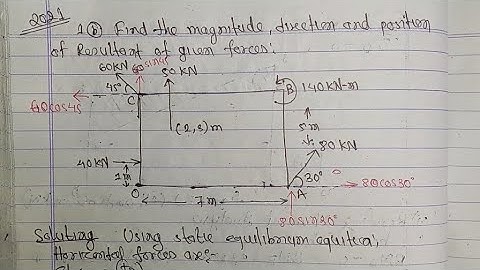 2021
1 (b) Find the magnitude, direction and position
of Resultant of given forces:
60KN 60sin45 50KN
60cos45 45° C B 140KN-m
(2,3)m 5m
40KN 80KN
1m 30° 80cos30°
O 7m A
80sin30°
Soluting Using static equilibrium
Horizontal forces are:-